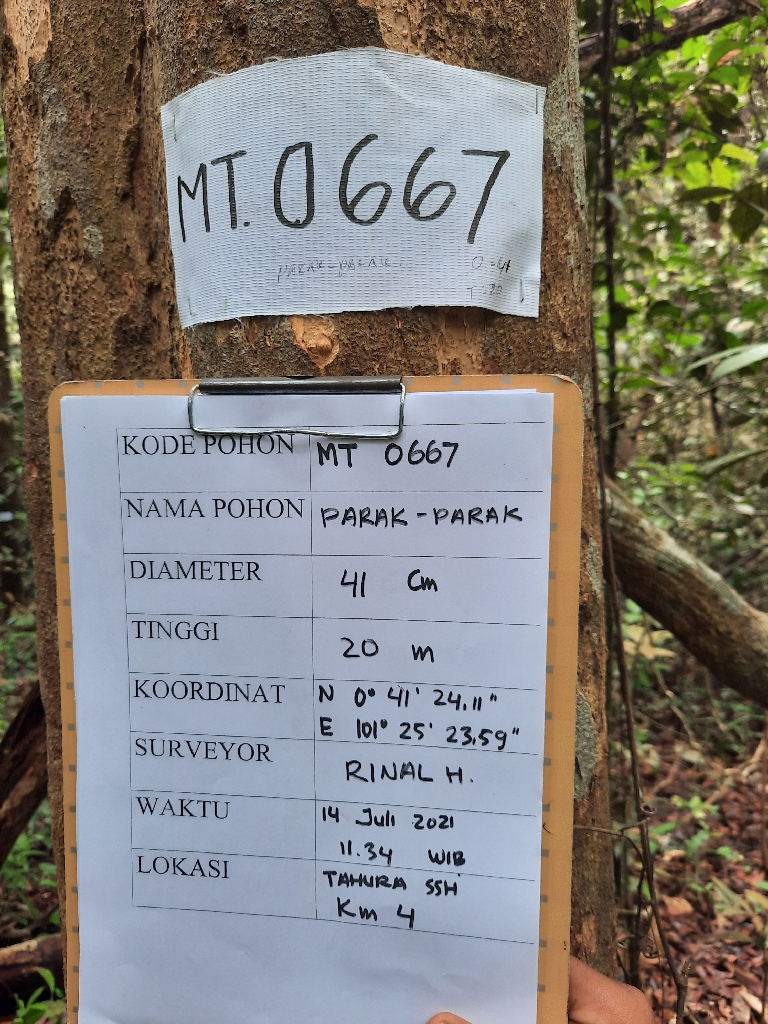 MT.0667
PARAK-PARAK
KODE POHON MT 0667
NAMA POHON PARAK-PARAK
DIAMETER 41 Cm
TINGGI 20 m
KOORDINAT N 0° 41' 24.11"
E 101° 25' 23.59"
SURVEYOR RINAL H.
WAKTU 14 Juli 2021
11.34 WIB
LOKASI TAHURA SSH
Km 4